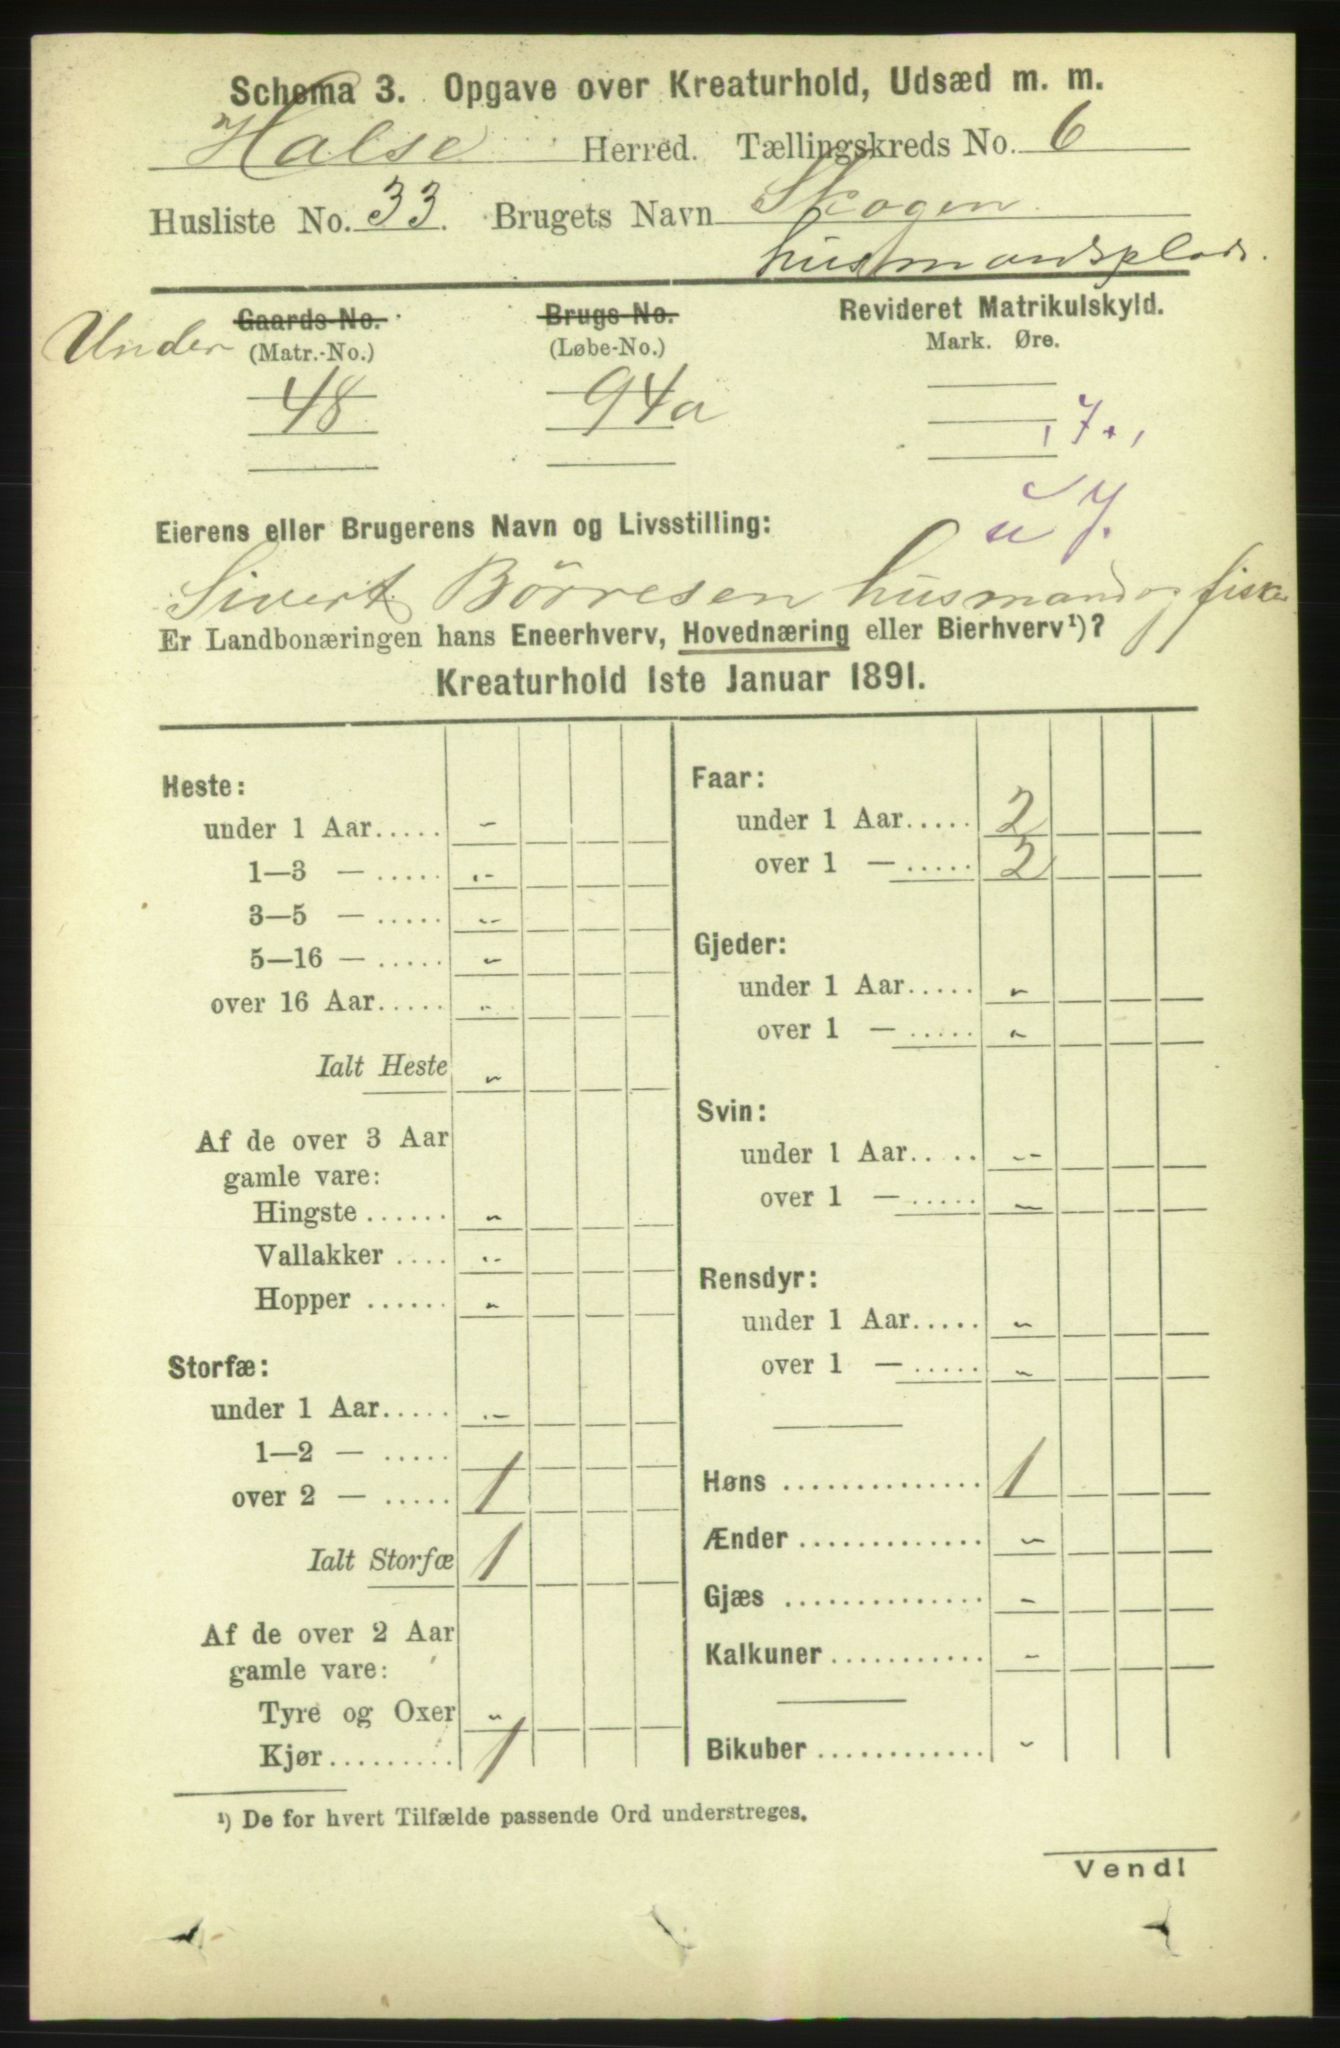 Schema 3. Opgave over Kreaturhold, Udsæd m. m.
Halse Herred. Tællingskreds No. 6
Husliste No. 33. Brugets Navn Skogen
husmandsplads.
Under Gaards-No. Brugs-No. Revideret Matrikulskyld.
(Matr.-No.) (Løbe-No.) Mark. Øre.
48 94a
Eierens eller Brugerens Navn og Livsstilling:
Sivert Börresen husmand og fisker
Er Landbonæringen hans Eneerhverv, Hovednæring eller Bierhverv¹)?
Kreaturhold 1ste Januar 1891.
Heste:
under 1 Aar..... -
1—3 — ..... -
3—5 — ..... -
5—16 — ..... -
over 16 Aar..... -
Ialt Heste -
Af de over 3 Aar
gamle vare:
Hingste ...... -
Vallakker .... -
Hopper ...... -
Storfæ:
under 1 Aar..... -
1—2 — .....
over 2 — ..... 1
Ialt Storfæ 1
Af de over 2 Aar
gamle vare:
Tyre og Oxer -
Kjør.......... 1
Faar:
under 1 Aar..... 2
over 1 — ..... 2
Gjeder:
under 1 Aar..... -
over 1 — ..... -
Svin:
under 1 Aar..... -
over 1 — ..... -
Rensdyr:
under 1 Aar..... -
over 1 — ..... -
Høns .............. 1
Ænder ............. -
Gjæs .............. -
Kalkuner ........... -
Bikuber ............ -
¹) De for hvert Tilfælde passende Ord understreges.
Vend!